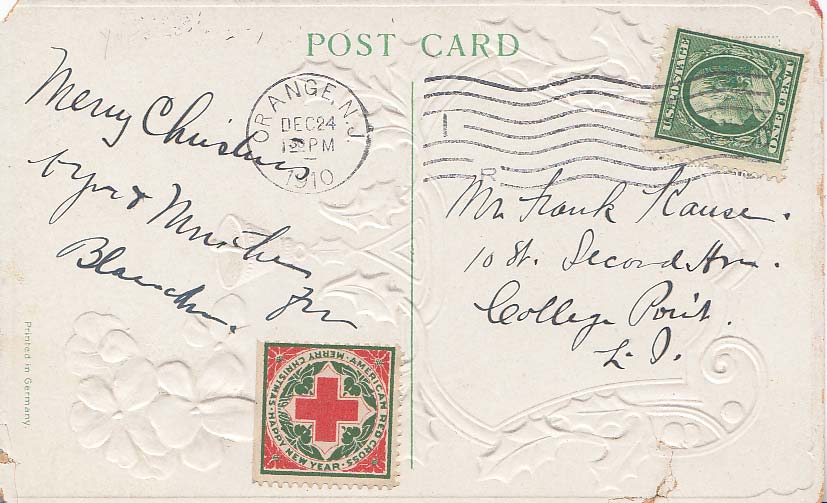 POST CARD
ORANGE, N.J.
DEC 24
PM
1910
U.S. POSTAGE
ONE
R
Merry Christmas
to you & Mother
from
Blanche.
Mr. Frank Kause.
10 St. Second Ave.
College Point.
L. I.
AMERICAN RED CROSS
MERRY CHRISTMAS · HAPPY NEW YEAR
Printed in Germany.